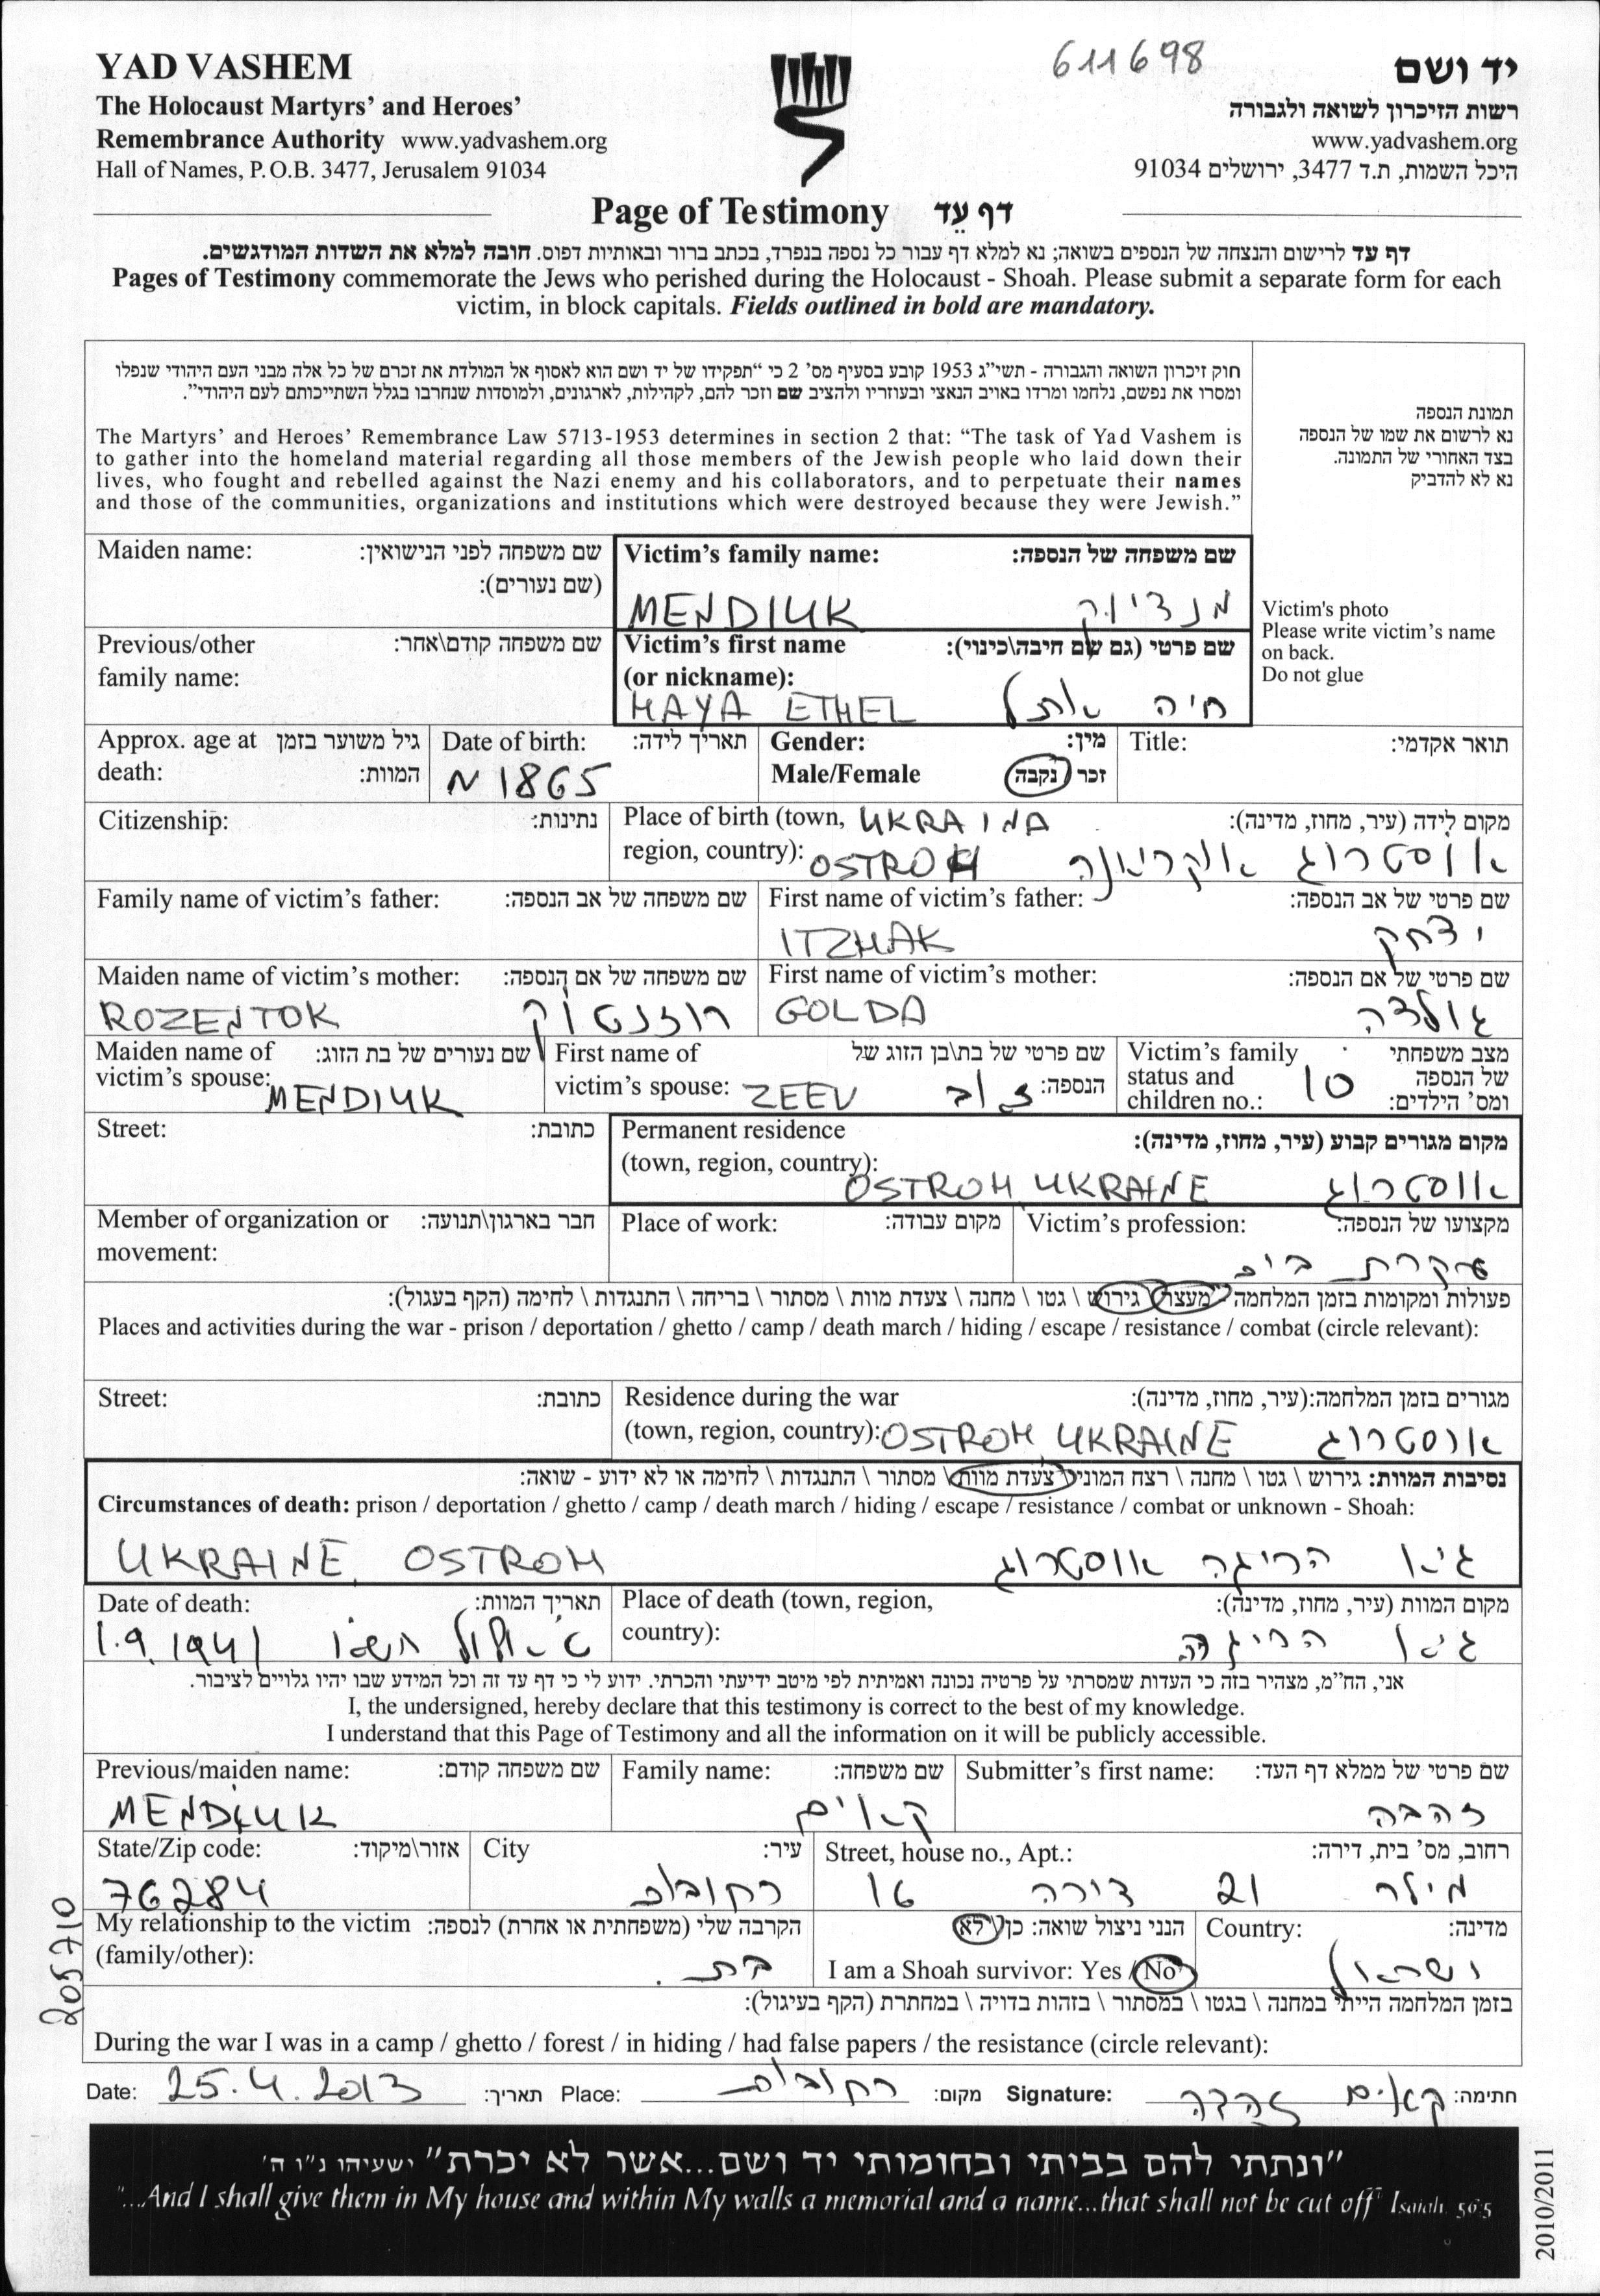 611698
YAD VASHEM
יד ושם
The Holocaust Martyrs' and Heroes'
רשות הזיכרון לשואה ולגבורה
Remembrance Authority www.yadvashem.org
www.yadvashem.org
Hall of Names, P.O.B. 3477, Jerusalem 91034
היכל השמות, ת.ד 3477, ירושלים 91034
Page of Testimony דף עֵד
דף עד לרישום והנצחה של הנספים בשואה; נא למלא דף עבור כל נספה בנפרד, בכתב ברור ובאותיות דפוס. חובה למלא את השדות המודגשים.
Pages of Testimony commemorate the Jews who perished during the Holocaust - Shoah. Please submit a separate form for each
victim, in block capitals. Fields outlined in bold are mandatory.
חוק זיכרון השואה והגבורה - תשי"ג 1953 קובע בסעיף מס' 2 כי "תפקידו של יד ושם הוא לאסוף אל המולדת את זכרם של כל אלה מבני העם היהודי שנפלו
ומסרו את נפשם, נלחמו ומרדו באויב הנאצי ובעוזריו ולהציב שם וזכר להם, לקהילות, לארגונים, ולמוסדות שנחרבו בגלל השתייכותם לעם היהודי".
The Martyrs' and Heroes' Remembrance Law 5713-1953 determines in section 2 that: "The task of Yad Vashem is
to gather into the homeland material regarding all those members of the Jewish people who laid down their
lives, who fought and rebelled against the Nazi enemy and his collaborators, and to perpetuate their names
and those of the communities, organizations and institutions which were destroyed because they were Jewish."
תמונת הנספה
נא לרשום את שמו של הנספה
בצד האחורי של התמונה.
נא לא להדביק
Victim's photo
Please write victim's name
on back.
Do not glue
Maiden name: שם משפחה לפני הנישואין:
(שם נעורים):
Victim's family name: שם משפחה של הנספה:
MENDIUK מנדיוק
Previous/other שם משפחה קודם\אחר:
family name:
Victim's first name שם פרטי (גם שם חיבה\כינוי):
(or nickname):
HAYA ETHEL חיה אתל
Approx. age at גיל משוער בזמן
death: המוות:
Date of birth: תאריך לידה:
N 1865
Gender: מין:
Male/Female זכר נקבה
Title: תואר אקדמי:
Citizenship: נתינות:
Place of birth (town, UKRAINA מקום לידה (עיר, מחוז, מדינה):
region, country): OSTROH אוסטרוג אוקראינה
Family name of victim's father: שם משפחה של אב הנספה:
First name of victim's father: שם פרטי של אב הנספה:
ITZHAK יצחק
Maiden name of victim's mother: שם משפחה של אם הנספה:
ROZENTOK רוזנטוק
First name of victim's mother: שם פרטי של אם הנספה:
GOLDA גולדה
Maiden name of שם נעורים של בת הזוג:
victim's spouse: MENDIUK
First name of שם פרטי של בת\בן הזוג של
victim's spouse: ZEEV זאב הנספה:
Victim's family מצב משפחתי
status and 10 של הנספה
children no.: ומס' הילדים:
Street: כתובת:
Permanent residence מקום מגורים קבוע (עיר, מחוז, מדינה):
(town, region, country):
OSTROH UKRAINE אוסטרוג
Member of organization or חבר בארגון\תנועה:
movement:
Place of work: מקום עבודה:
Victim's profession: מקצועו של הנספה:
עקרת בית
פעולות ומקומות בזמן המלחמה - מעצר \ גירוש \ גטו \ מחנה \ צעדת מוות \ מסתור \ בריחה \ התנגדות \ לחימה (הקף בעגול):
Places and activities during the war - prison / deportation / ghetto / camp / death march / hiding / escape / resistance / combat (circle relevant):
Street: כתובת:
Residence during the war מגורים בזמן המלחמה:(עיר, מחוז, מדינה):
(town, region, country): OSTROH UKRAINE אוסטרוג
נסיבות המוות: גירוש \ גטו \ מחנה \ רצח המוני \ צעדת מוות \ מסתור \ התנגדות \ לחימה או לא ידוע - שואה:
Circumstances of death: prison / deportation / ghetto / camp / death march / hiding / escape / resistance / combat or unknown - Shoah:
UKRAINE OSTROH גיא הריגה אוסטרוג
Date of death: תאריך המוות:
1.9.1941 אלול
Place of death (town, region, מקום המוות (עיר, מחוז, מדינה):
country): גיא הריגה
אני, הח"מ, מצהיר בזה כי העדות שמסרתי על פרטיה נכונה ואמיתית לפי מיטב ידיעתי והכרתי. ידוע לי כי דף עד זה וכל המידע שבו יהיו גלויים לציבור.
I, the undersigned, hereby declare that this testimony is correct to the best of my knowledge.
I understand that this Page of Testimony and all the information on it will be publicly accessible.
Previous/maiden name: שם משפחה קודם:
MENDIUK
Family name: שם משפחה:
קאים
Submitter's first name: שם פרטי של ממלא דף העד:
זהבה
State/Zip code: אזור\מיקוד:
76284
City עיר:
רחובות
Street, house no., Apt.: רחוב, מס' בית, דירה:
מילר 21 דירה 16
My relationship to the victim הקרבה שלי (משפחתית או אחרת) לנספה:
(family/other):
I am a Shoah survivor: Yes / No הנני ניצול שואה: כן \ לא
Country: מדינה:
ישראל
בזמן המלחמה הייתי במחנה \ בגטו \ במסתור \ בזהות בדויה \ במחתרת (הקף בעיגול):
During the war I was in a camp / ghetto / forest / in hiding / had false papers / the resistance (circle relevant):
Date: 25.4.2013 תאריך: Place: רחובות מקום: Signature: קאים זהבה חתימה:
"ונתתי להם בביתי ובחומותי יד ושם...אשר לא יכרת" ישעיהו נ"ו ה'
"...And I shall give them in My house and within My walls a memorial and a name...that shall not be cut off" Isaiah 56:5
205710
2010/2011